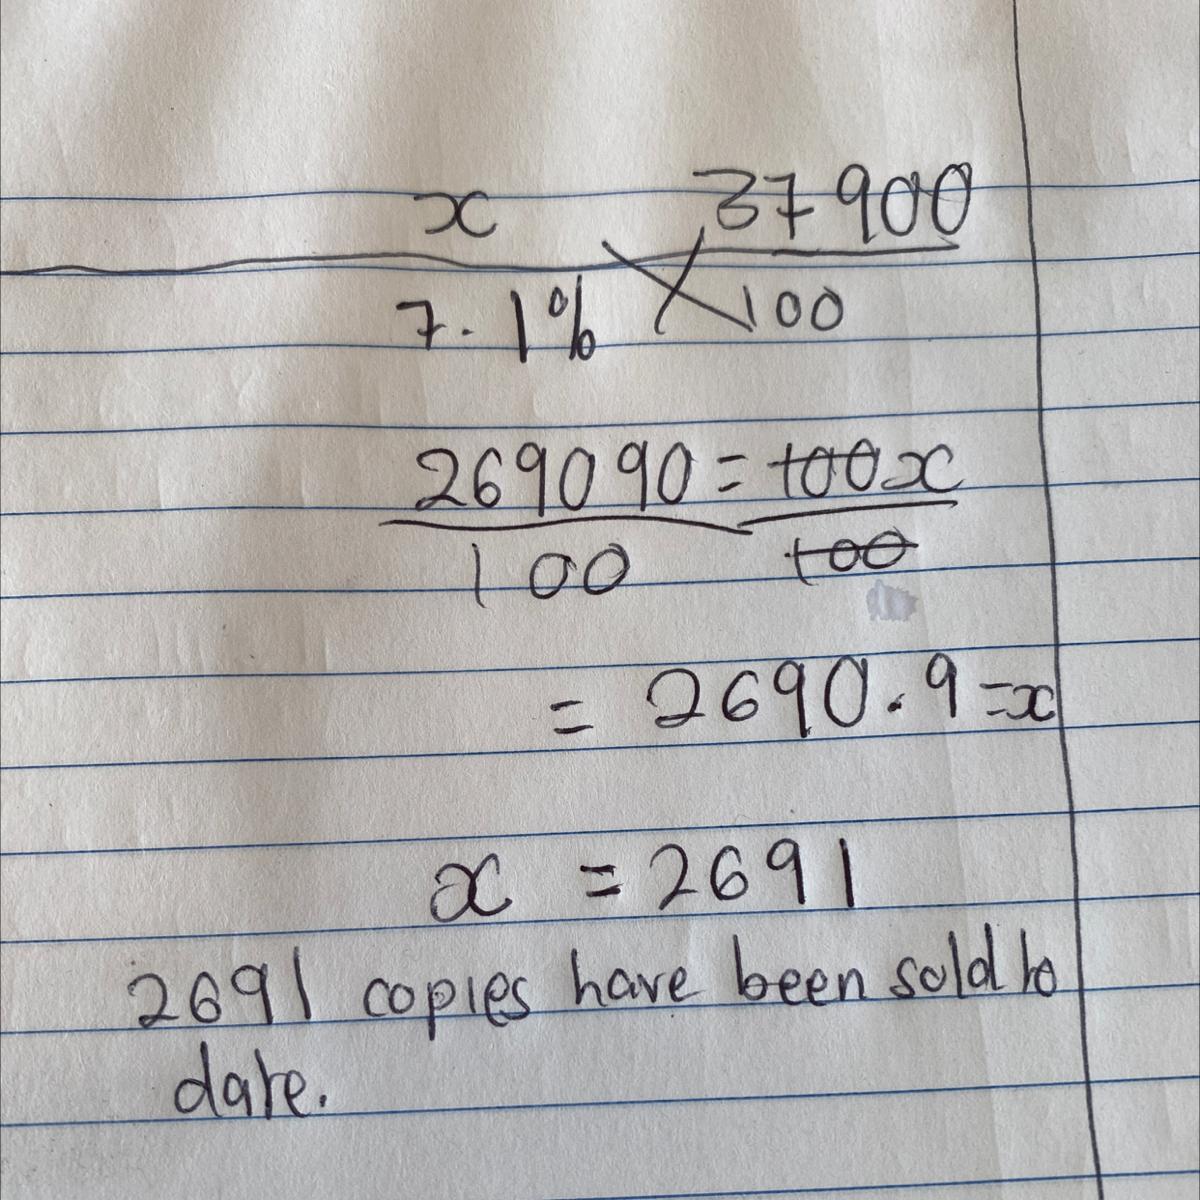 x 37900
7.1% 100
269090 = 100x
100 100
= 2690.9 = x
x = 2691
2691 copies have been sold to
date.